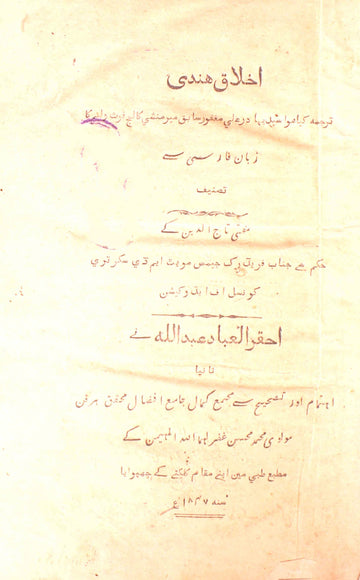 اخلاق هندي
ترجمه کیا هوا سید بهادر علي مغفور سابق میر منشي کالج فورٹ ولیم کا
زبان فارسي سے
تصنیف
مفتي تاج الدین کے
حکم سے جناب فریڈرک جیمس مویٹ ایم ڈي سکرٹري
کونسل اف ایڈوکیشن
احقر العباد عبدالله نے
ثانیا
اهتمام اور تصحیح سے مجمع کمال جامع افضال محقق هر فن
مولوي محمد محسن غفر لهما الله المهیمن کے
مطبع طبي مین اپنے مقام کلکتے کے چهپوایا
سنه ۱۸۴۷ ع